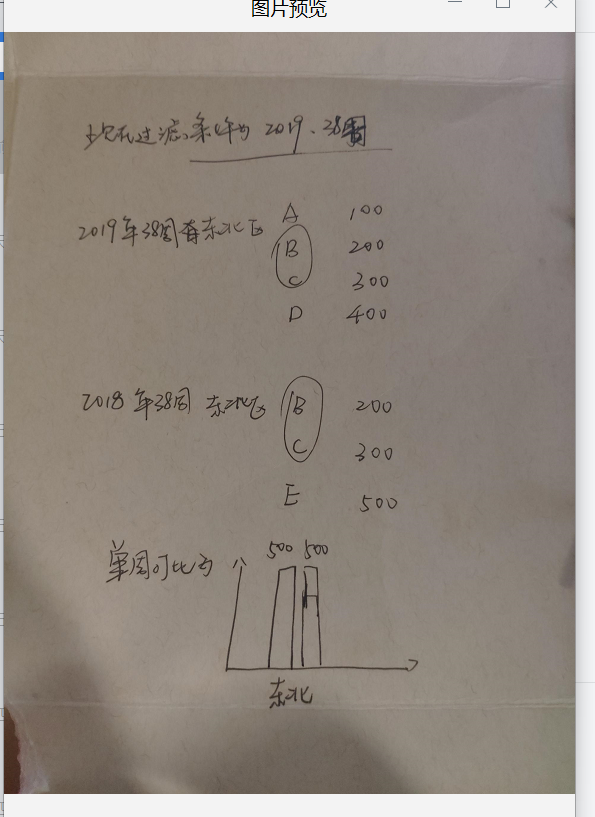 图片预览
现在过滤条件为 2019、38周
A 100
2019年38周 东北区 B 200
C 300
D 400
2018年38周 东北区 B 200
C 300
E 500
单周可比为 500 500
东北